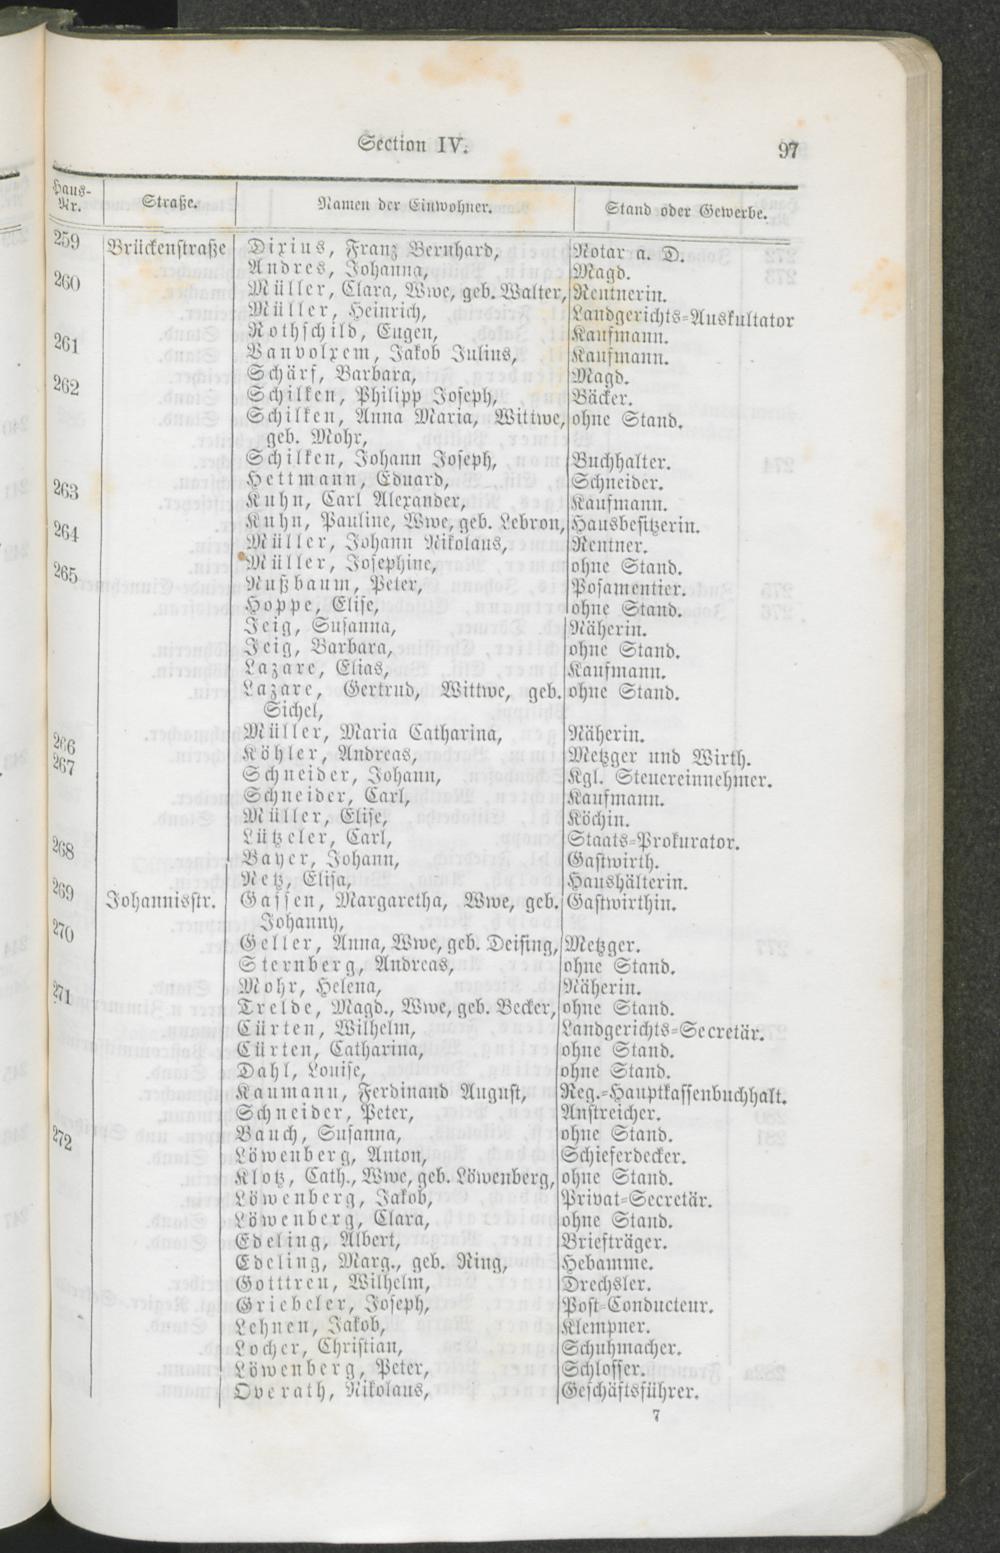 Section IV. 97
Haus-Nr. Straße. Namen der Einwohner. Stand oder Gewerbe.
259 Brückenstraße Dixius, Franz Bernhard, Notar a. D.
Andres, Johanna, Magd.
260 Müller, Clara, Wwe, geb. Walter, Rentnerin.
Müller, Heinrich, Landgerichts-Auskultator
Rothschild, Eugen, Kaufmann.
261 Vanvolxem, Jakob Julius, Kaufmann.
Schärf, Barbara, Magd.
262 Schilken, Philipp Joseph, Bäcker.
Schilken, Anna Maria, Wittwe, ohne Stand.
geb. Mohr,
Schilken, Johann Joseph, Buchhalter.
Hettmann, Eduard, Schneider.
263 Kuhn, Carl Alexander, Kaufmann.
Kuhn, Pauline, Wwe, geb. Lebron, Hausbesitzerin.
264 Müller, Johann Nikolaus, Rentner.
Müller, Josephine, ohne Stand.
265 Nußbaum, Peter, Posamentier.
Hoppe, Elise, ohne Stand.
Jeig, Susanna, Näherin.
Jeig, Barbara, ohne Stand.
Lazare, Elias, Kaufmann.
Lazare, Gertrud, Wittwe, geb. ohne Stand.
Sichel,
Müller, Maria Catharina, Näherin.
266 Köhler, Andreas, Metzger und Wirth.
267 Schneider, Johann, Kgl. Steuereinnehmer.
Schneider, Carl, Kaufmann.
Müller, Elise, Köchin.
Lützeler, Carl, Staats-Prokurator.
268 Bayer, Johann, Gastwirth.
Netz, Elisa, Haushälterin.
269 Johannisstr. Gassen, Margaretha, Wwe, geb. Gastwirthin.
Johanny,
270 Geller, Anna, Wwe, geb. Deising, Metzger.
Sternberg, Andreas, ohne Stand.
Mohr, Helena, Näherin.
271 Trelde, Magd., Wwe, geb. Becker, ohne Stand.
Cürten, Wilhelm, Landgerichts-Secretär.
Cürten, Catharina, ohne Stand.
Dahl, Louise, ohne Stand.
Kaumann, Ferdinand August, Reg.-Hauptkassenbuchhalt.
Schneider, Peter, Anstreicher.
272 Bauch, Susanna, ohne Stand.
Löwenberg, Anton, Schieferdecker.
Klotz, Cath., Wwe, geb. Löwenberg, ohne Stand.
Löwenberg, Jakob, Privat-Secretär.
Löwenberg, Clara, ohne Stand.
Edeling, Albert, Briefträger.
Edeling, Marg., geb. Ring, Hebamme.
Gotttreu, Wilhelm, Drechsler.
Griebeler, Joseph, Post-Conducteur.
Lehnen, Jakob, Klempner.
Locher, Christian, Schuhmacher.
Löwenberg, Peter, Schlosser.
Overath, Nikolaus, Geschäftsführer.
7